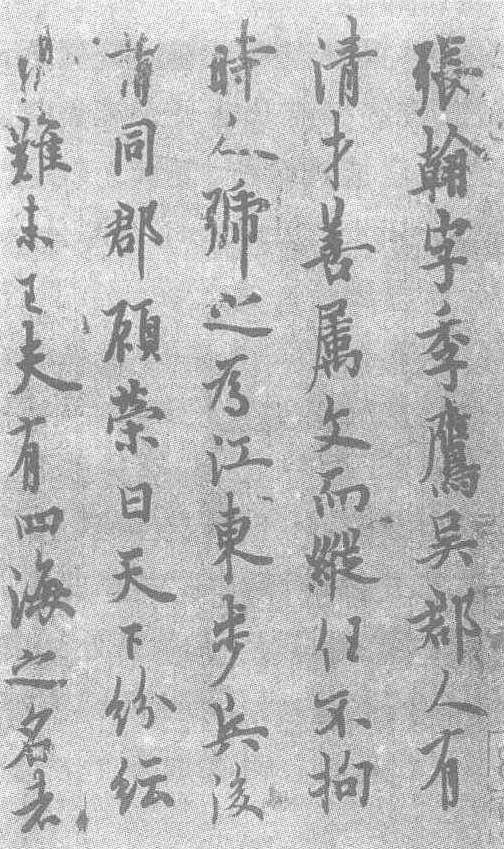 張翰字季鷹吳郡人有
清才善属文而縱任不拘
時人號之為江東步兵後
謂同郡顧榮曰天下紛紜
難未已夫有四海之名者